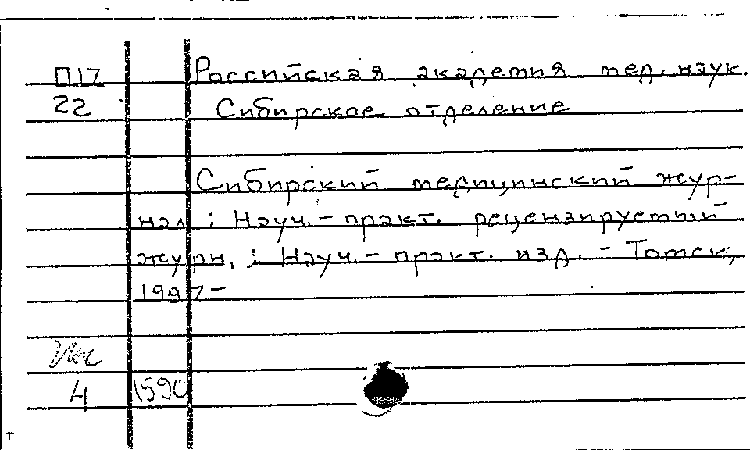 П17 Российская академия мед. наук.
22 Сибирское отделение
Сибирский медицинский жур-
нал : Науч.- практ. рецензируемый
журн, : Науч.- практ. изд. - Томск,
1997-
4 1590
т